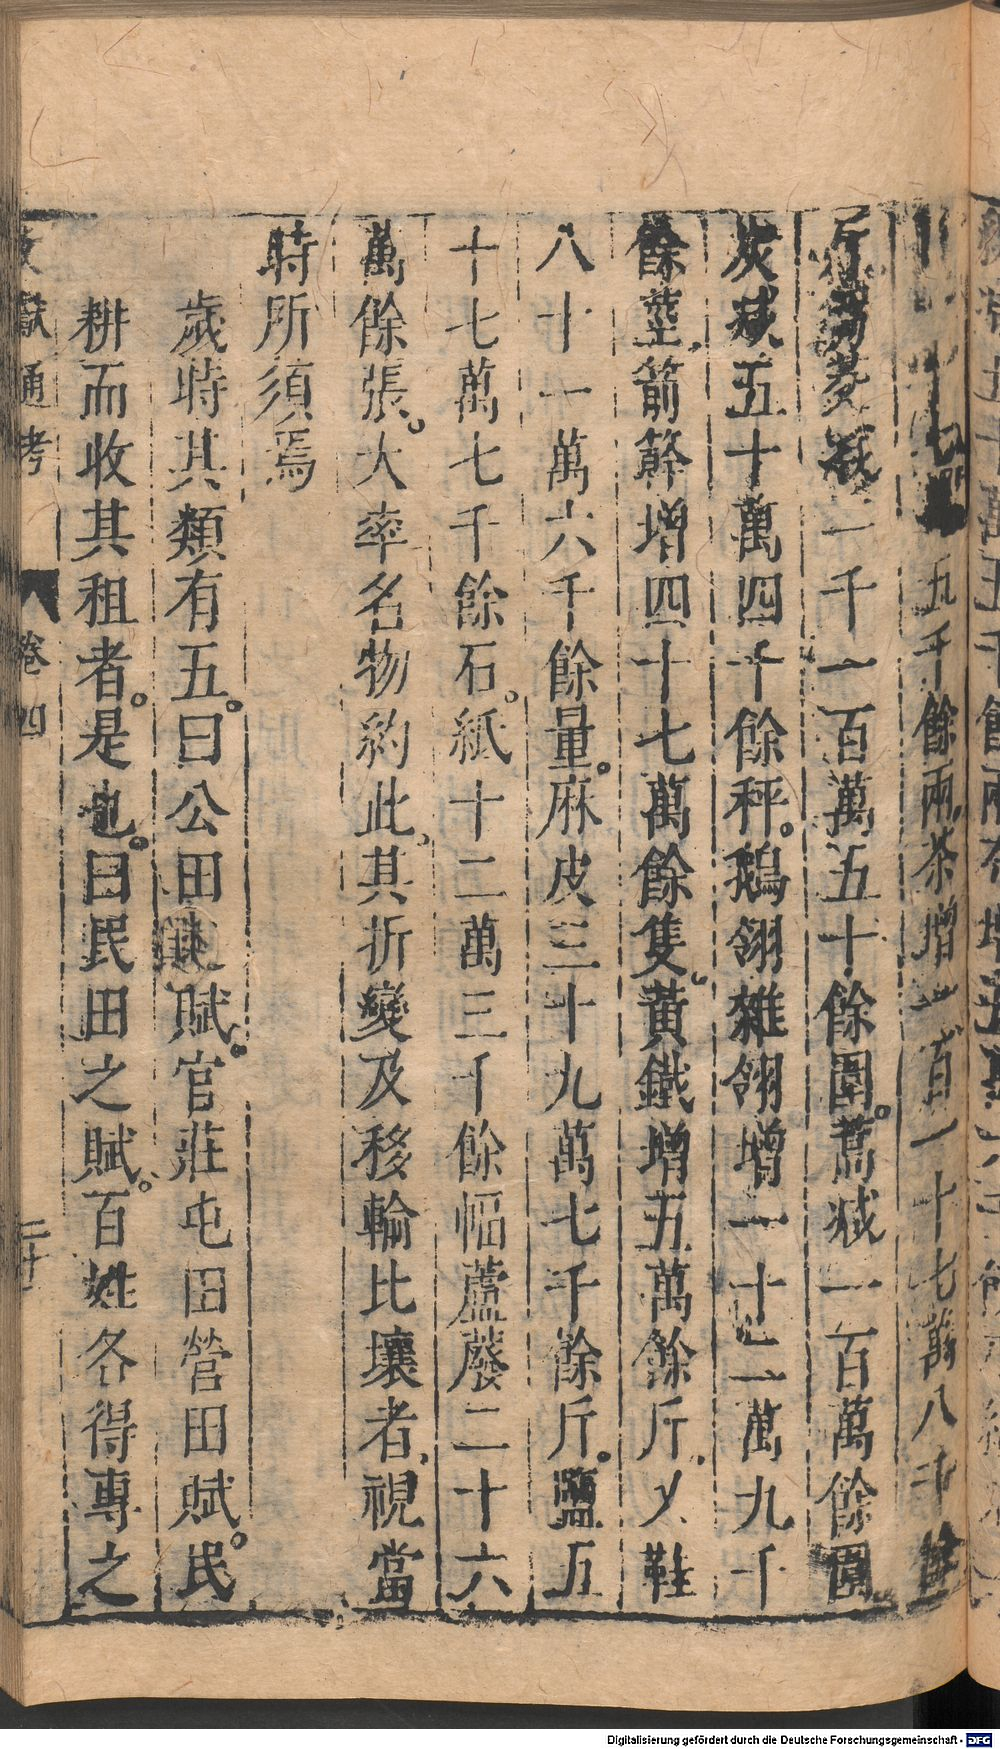 五千餘兩茶增一百一十七萬八千餘
斤芻茭減一千一百萬五十餘圍。蒿減一百萬餘圍
炭減五十萬四千餘秤。鵝翎雜翎增一十二萬九千
餘莖箭簳增四十七萬餘隻。黃鐵增五萬餘斤又鞋
八十一萬六千餘量。麻皮三十九萬七千餘斤。鹽五
十七萬七千餘石。紙十二萬三千餘幅蘆廢二十六
萬餘張。大率名物約此其折變及移輸比壤者視當
時所須焉
歲時其類有五。曰公田賦。官莊屯田營田賦。民
耕而收其租者。是也。曰民田之賦。百姓各得專之
文獻通考 卷四 二十
Digitalisierung gefördert durch die Deutsche Forschungsgemeinschaft - DFG